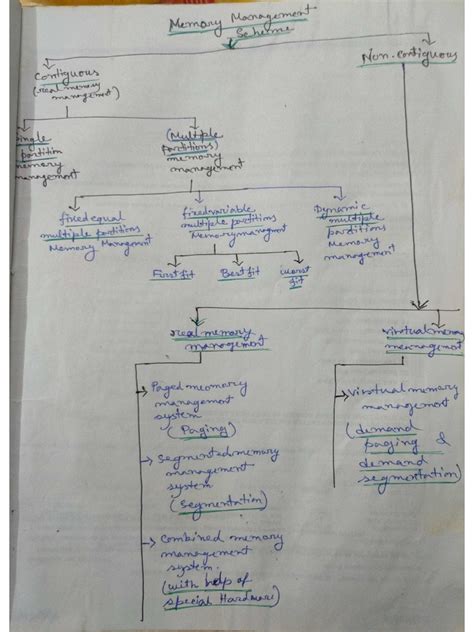 Memory Management
Scheme
Contiguous
(real memory
management)
Non-Contiguous
Single
partition
memory
management
(Multiple
partitions)
memory
management
fixed equal
multiple partitions
Memory Management
fixed variable
multiple partitions
Memory managment
Dynamic
multiple
partitions
Memory
management
First fit
Best fit
worst
fit
real memory
management
virutual memory
management
Paged meomory
management
system
(Paging)
Segmented memory
management
system
(Segmentation)
Combined memory
management
system.
(with help of
special Hardware)
Virutual memory
management
(demand
paging &
demand
segmentation)